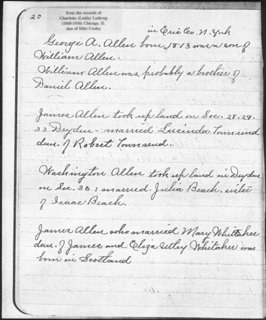 20
from the records of
Charlotte (Leslie) Lathrop
in Erie Co. N. York
George A. Allen born 1813 was a son of
William Allen.
William Allen was probably a brother of
Daniel Allen.
James Allen took up land on Sec. 28-29-
33 Dryden - married Lucinda Townsend
dau. of Robert Townsend.
Washington Allen took up land in Dryden
on Sec. 30; married Julia Beach, sister
of Isaac Beach.
James Allen who married Mary Whitaker
dau. of James and Eliza Utley Whitaker was
born in Scotland